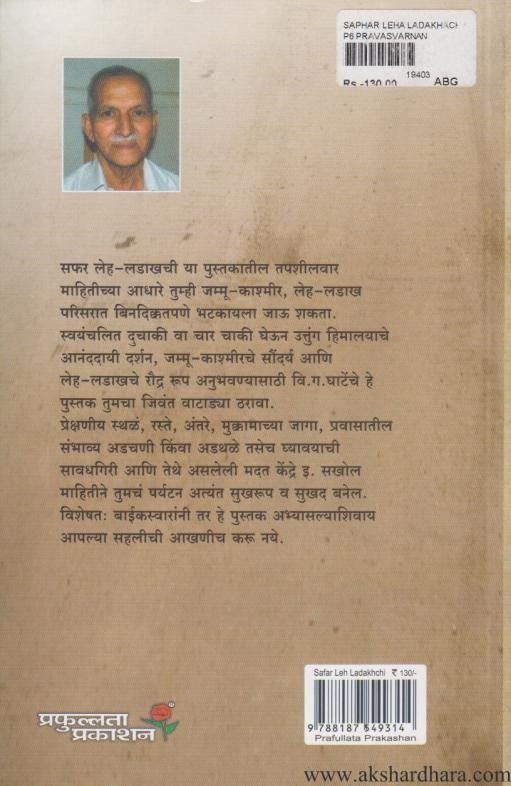 SAPHAR LEHA LADAKHACHI
P6 PRAVASVARNAN
19403
Rs.-130.00 ABG
सफर लेह-लडाखची या पुस्तकातील तपशीलवार
माहितीच्या आधारे तुम्ही जम्मू-काश्मीर, लेह-लडाख
परिसरात बिनदिक्कतपणे भटकायला जाऊ शकता.
स्वयंचलित दुचाकी वा चार चाकी घेऊन उत्तुंग हिमालयाचे
आनंददायी दर्शन, जम्मू-काश्मीरचे सौंदर्य आणि
लेह-लडाखचे रौद्र रूप अनुभवण्यासाठी वि.ग.घाटेंचे हे
पुस्तक तुमचा जिवंत वाटाड्या ठरावा.
प्रेक्षणीय स्थळं, रस्ते, अंतरे, मुक्कामाच्या जागा, प्रवासातील
संभाव्य अडचणी किंवा अडथळे तसेच घ्यावयाची
सावधगिरी आणि तेथे असलेली मदत केंद्रे इ. सखोल
माहितीने तुमचं पर्यटन अत्यंत सुखरूप व सुखद बनेल.
विशेषतः बाईकस्वारांनी तर हे पुस्तक अभ्यासल्याशिवाय
आपल्या सहलीची आखणीच करू नये.
Safar Leh Ladakhchi ₹ 130/-
9 788187 549314
Prafullata Prakashan
प्रफुल्लता
प्रकाशन
www.akshardhara.com